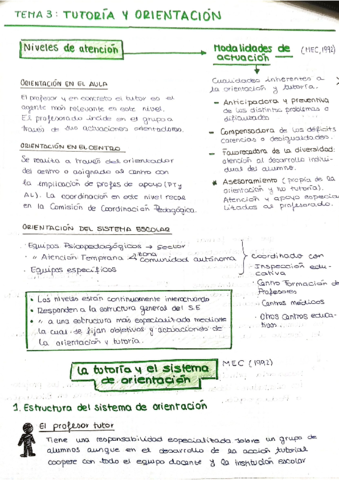 TEMA 3: TUTORÍA Y ORIENTACIÓN
Niveles de atención
Modalidades de actuación (MEC, 1992)
ORIENTACIÓN EN EL AULA
El profesor y en concreto el tutor es el
agente más relevante en este nivel.
El profesorado incide en el grupo a
través de sus actuaciones orientadoras.
ORIENTACIÓN EN EL CENTRO
Se realiza a través del orientador
del centro o asignado al centro con
la implicación de profes de apoyo (PT y
AL). La coordinación en este nivel recae
en la Comisión de Coordinación Pedagógica.
Cualidades inherentes a
la orientación y tutoría.
- Anticipadora y preventiva
de los distintos problemas o
dificultades
- Compensadora de los déficits
carencias o desigualdades.
- Favorecedora de la diversidad,
atención al desarrollo indivi-
dual del alumno.
* Asesoramiento (propia de la
orientación y no tutoría).
Atención y apoyo especia-
lizados al profesorado.
ORIENTACIÓN DEL SISTEMA ESCOLAR
· Equipos Psicopedagógicos → Sector
· " Atención Temprana Zona
Comunidad autónoma
· Equipos específicos
Coordinado con
- Inspección edu-
cativa
- Centro Formación de
Profesores
- Centros médicos
- Otros centros educa-
tivos.
• Los niveles están continuamente interactuando
• Responden a la estructura general del S.E
• " a una estructura más especializada mediante
la cual se fijan objetivos y actuaciones de
la orientación y tutoría.
La tutoría y el sistema
de orientación
MEC (1992)
1. Estructura del sistema de orientación
El profesor tutor
Tiene una responsabilidad especializada sobre un grupo de
alumnos aunque en el desarrollo de la acción tutorial
coopere con todo el equipo docente y la institución escolar